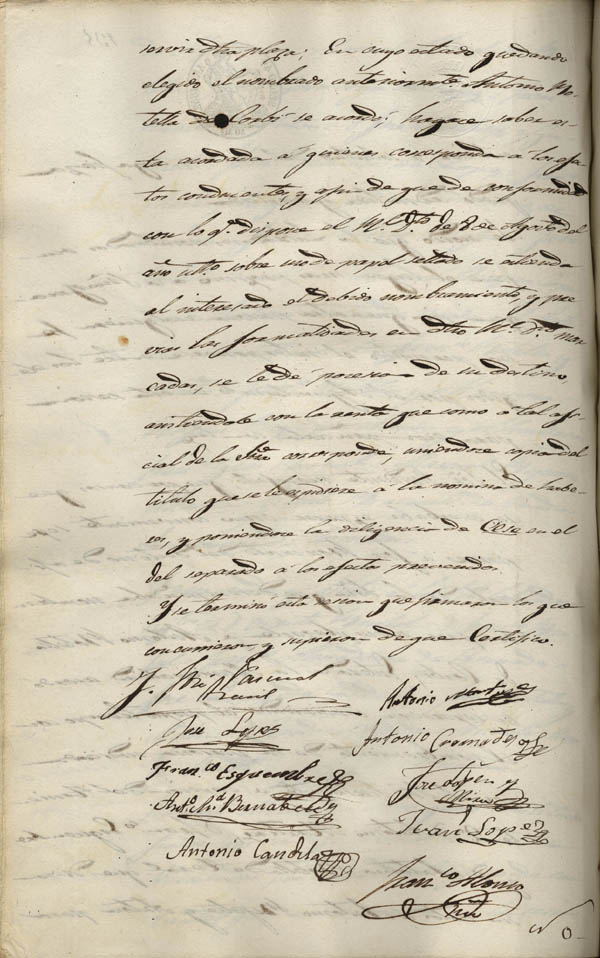 servir dha plaza; En cuyo estado quedando
elegido el nombrado anteriormte. Antonio Mo-
tella de Corbí se acordó; hagase saber es-
ta acordada á quienes corresponda á los efec-
tos conducentes, y afin de que de conformidad
con lo qe. dispone el Rl. Dto. de 8 de Agosto del
año ulto. sobre uso de papel sellado se estienda
al interesado el debido nombramiento, y pre
vias las formalidades en dho Rl. Dto. mar
cadas, se le dé posesion de su destino,
asistiendole con la renta que como á tal ofi-
cial de la Sria corresponde, uniendose copia del
titulo que se le espidiere á la nomina de habe-
res, y poniendose la diligencia de Cese en el
del separado á los efectos prevenidos.
Y se terminó esta sesion que firmaron los que
concurrieron y supieron de que Certifico.
J. Pascual
Antonio Martinez
José Lopez
Antonio Cremades
Franco. Esquembre
José Lopez y
Mira
Anto. Bernabeu
Juan Lopez
Antonio Candela
Franco. Alonso